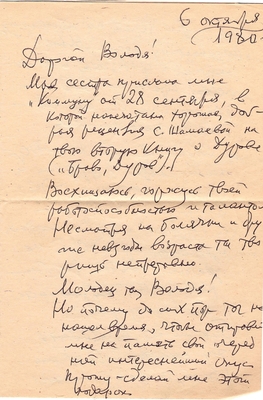 6 октября
1980
Дорогой Володя!
Моя сестра прислала мне
"Коммуну от 28 сентября, в
которой напечатана хорошая, доб-
рая рецензия С. на
твою вторую книгу о Дурове
("Браво, Дуров").
Восхищаюсь, горжусь твоей
работоспособностью и талантом
Несмотря на болячки и дру
гие невзгоды возраста ты тво
ришь непрерывно.
Молодец ты, Володя!
Но почему до сих пор ты не
нашел время, чтобы отправить
мне на память свой очеред
ной интереснейший опус
сделай мне этот
подарок